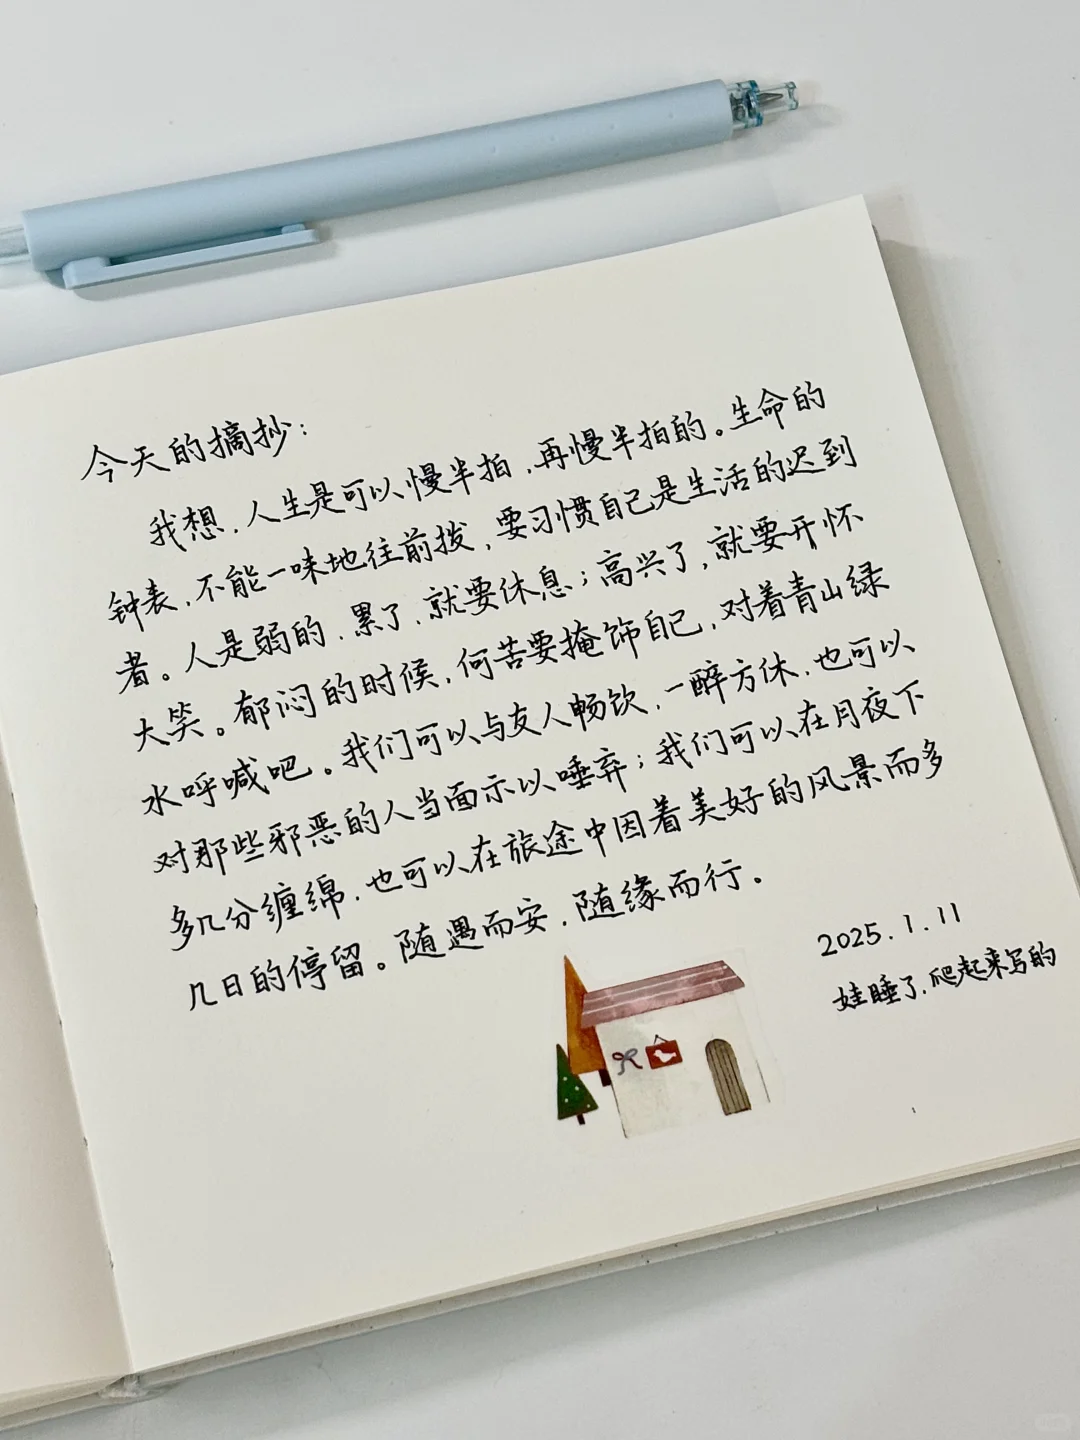 今天的摘抄：
我想，人生是可以慢半拍，再慢半拍的。生命的
钟表，不能一味地往前拨，要习惯自己是生活的迟到
者。人是弱的，累了，就要休息；高兴了，就要开怀
大笑。郁闷的时候，何苦要掩饰自己，对着青山绿
水呼喊吧。我们可以与友人畅饮，一醉方休，也可以
对那些邪恶的人当面示以唾弃；我们可以在月夜下
多几分缠绵，也可以在旅途中因着美好的风景而多
几日的停留。随遇而安，随缘而行。
2025.1.11
娃睡了，爬起来写的